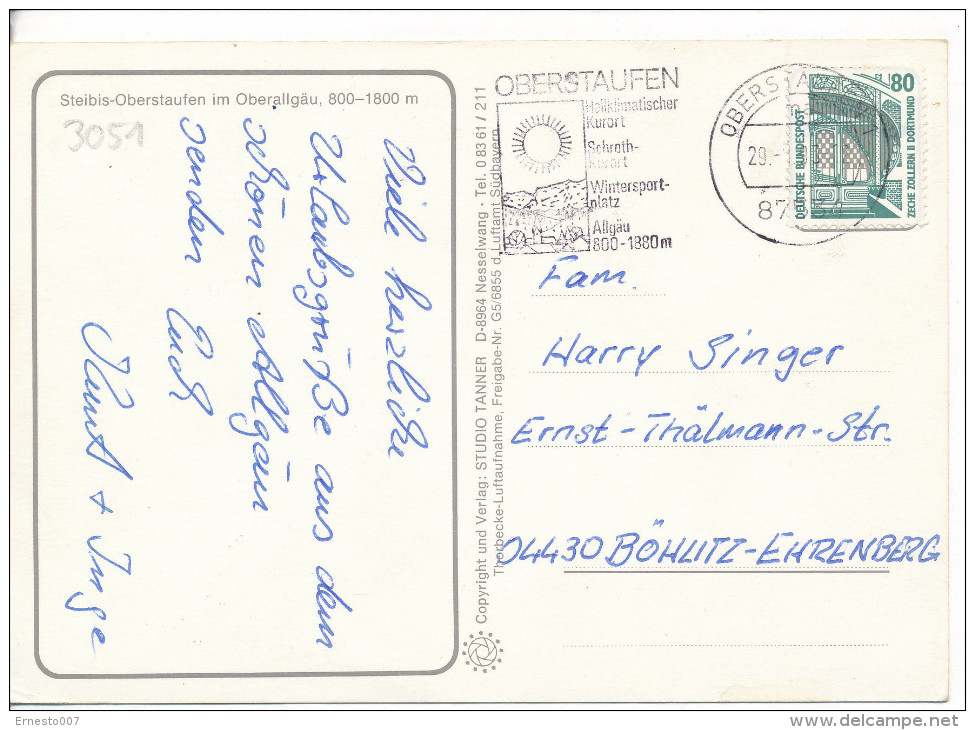 Steibis-Oberstaufen im Oberallgäu, 800–1800 m
3051
Viele herzliche
Urlaubsgrüße aus dem
schönen Allgäu
senden Euch
Kurt + Inge
Copyright und Verlag: STUDIO TANNER D-8964 Nesselwang · Tel. 0 83 61 / 211
Thorbecke-Luftaufnahme, Freigabe-Nr. G5/6855 d. Luftamt Südbayern
OBERSTAUFEN
Heilklimatischer
Kurort
Schroth-
kurort
Wintersport-
platz
Allgäu
800-1880 m
29.
80
DEUTSCHE BUNDESPOST
ZECHE ZOLLERN II DORTMUND
Fam.
Harry Singer
Ernst-Thälmann-Str.
04430 BÖHLITZ-EHRENBERG
Ernesto007
www.delcampe.net